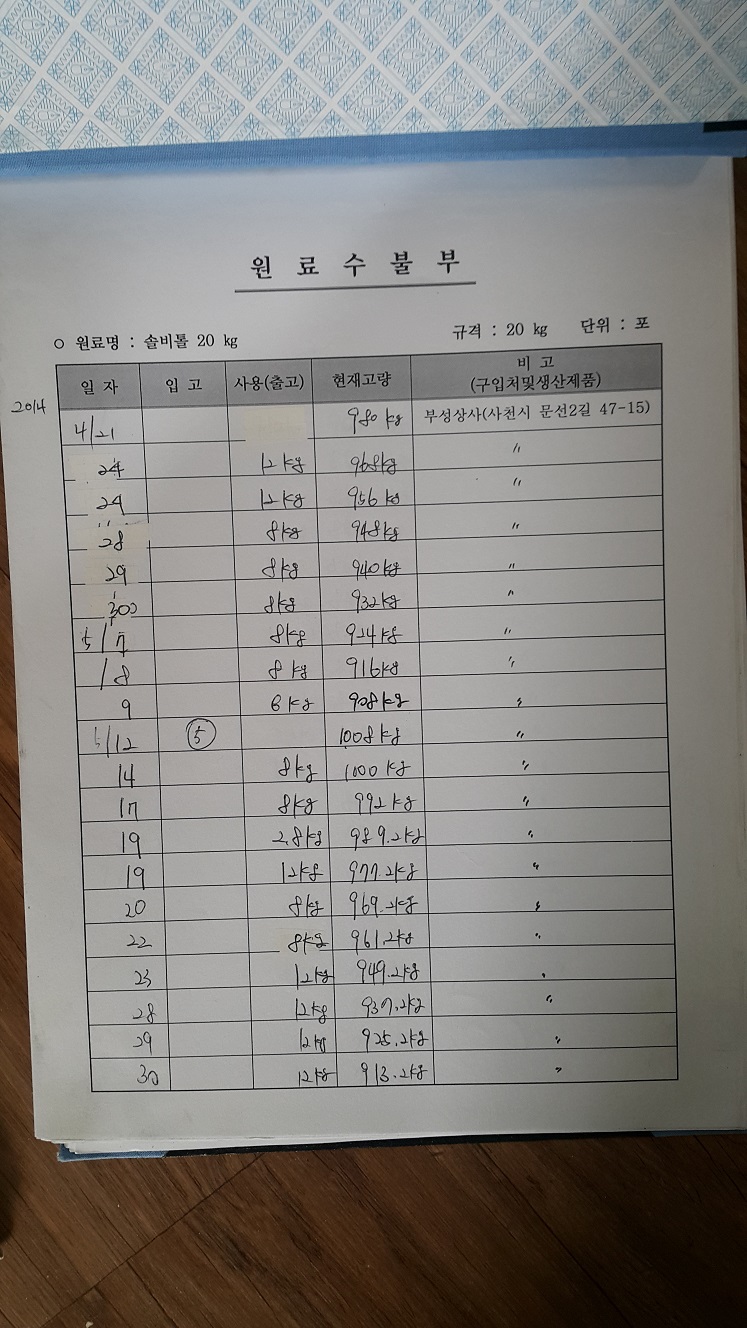 원 료 수 불 부
○ 원료명 : 솔비톨 20 kg 규격 : 20 kg 단위 : 포
일 자 입 고 사용(출고) 현재고량 비 고
(구입처및생산제품)
2014
4/21 980 kg 부성상사(사천시 문선2길 47-15)
24 12 kg 968kg 〃
24 12 kg 956 kg 〃
28 8kg 948kg 〃
29 8kg 940kg 〃
30 8kg 932kg 〃
5/7 8kg 924kg 〃
/8 8 kg 916kg 〃
9 8 kg 908kg 〃
5/12 ⑤ 1008 kg 〃
14 8kg 1000 kg 〃
17 8kg 992 kg 〃
19 2.8kg 989.2kg 〃
19 12kg 977.2kg 〃
20 8kg 969.2kg 〃
22 8kg 961.2kg 〃
23 12kg 949.2kg 〃
28 12kg 937.2kg 〃
29 12kg 925.2kg 〃
30 12kg 913.2kg 〃